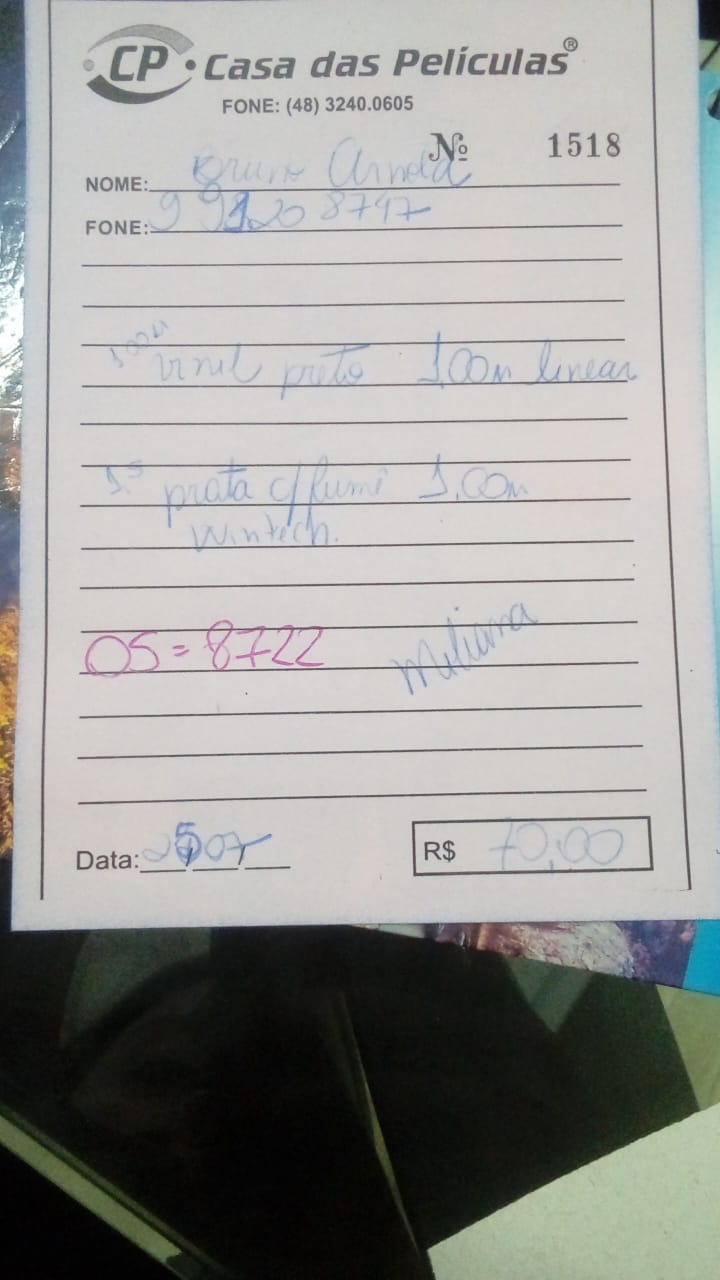 CP Casa das Películas®
FONE: (48) 3240.0605
Nº 1518
NOME: Bruno Arnold
FONE: 9 9120 8747
1,00m
vinil preto 1,00m linear
prata c/ fumê 1,00m
Wintech.
OS = 8722
Data: 25/07
R$ 70,00